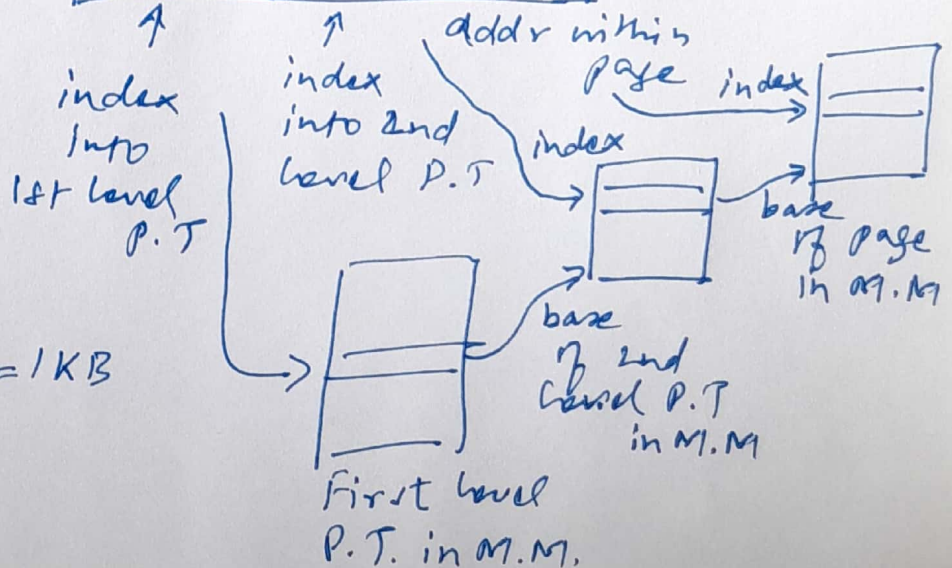 index
into
1st Level
P.T
index
into 2nd
Level P.T
addr within
page
index
index
base
of page
in M.M
base
of 2nd
Level P.T
in M.M
= 1KB
First Level
P.T. in M.M.